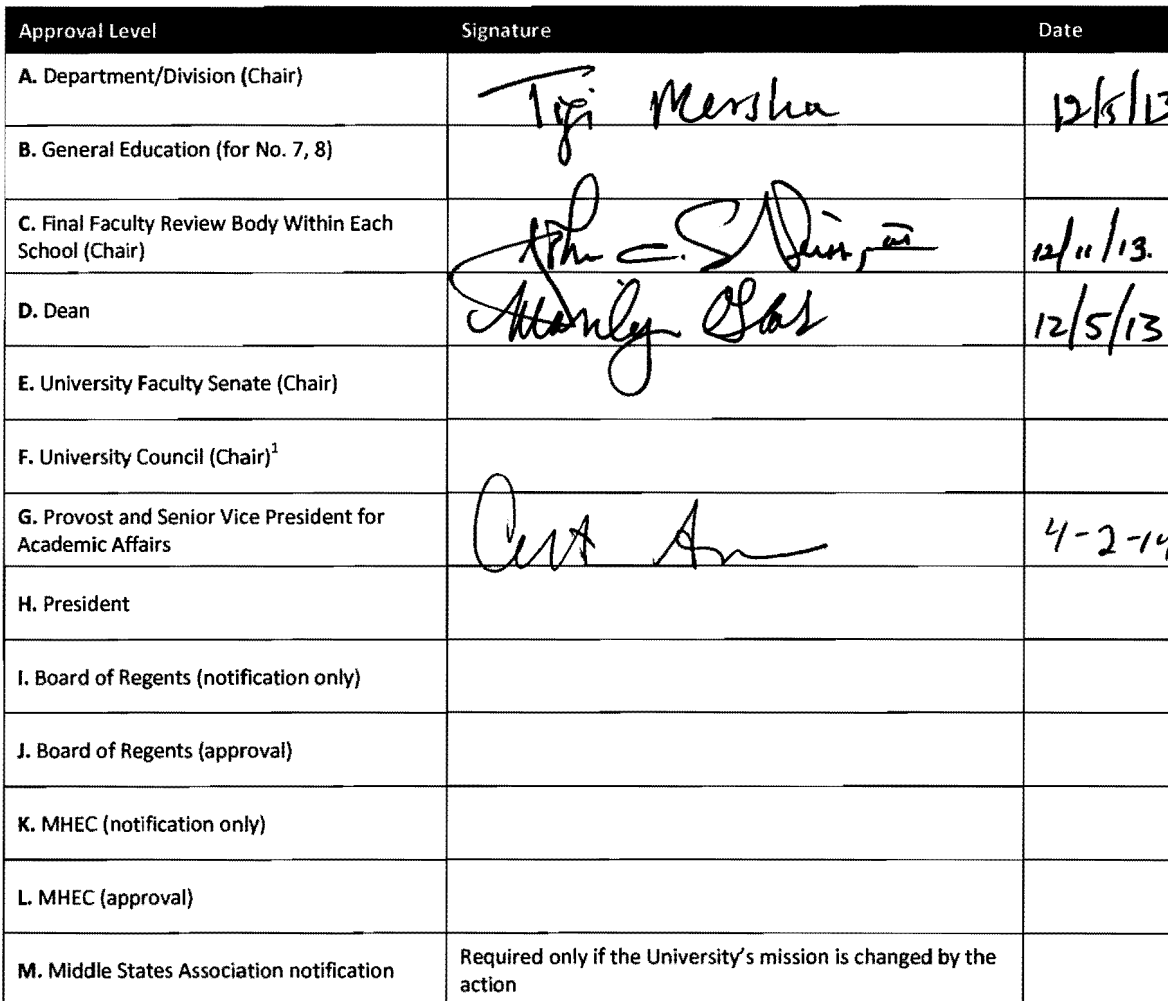 Approval Level Signature Date
A. Department/Division (Chair) Tigi Mersha 12/5/13
B. General Education (for No. 7, 8)
C. Final Faculty Review Body Within Each
School (Chair) John C. 12/11/13.
D. Dean Marilyn 12/5/13
E. University Faculty Senate (Chair)
F. University Council (Chair)1
G. Provost and Senior Vice President for
Academic Affairs 4-2-14
H. President
I. Board of Regents (notification only)
J. Board of Regents (approval)
K. MHEC (notification only)
L. MHEC (approval)
M. Middle States Association notification Required only if the University's mission is changed by the
action